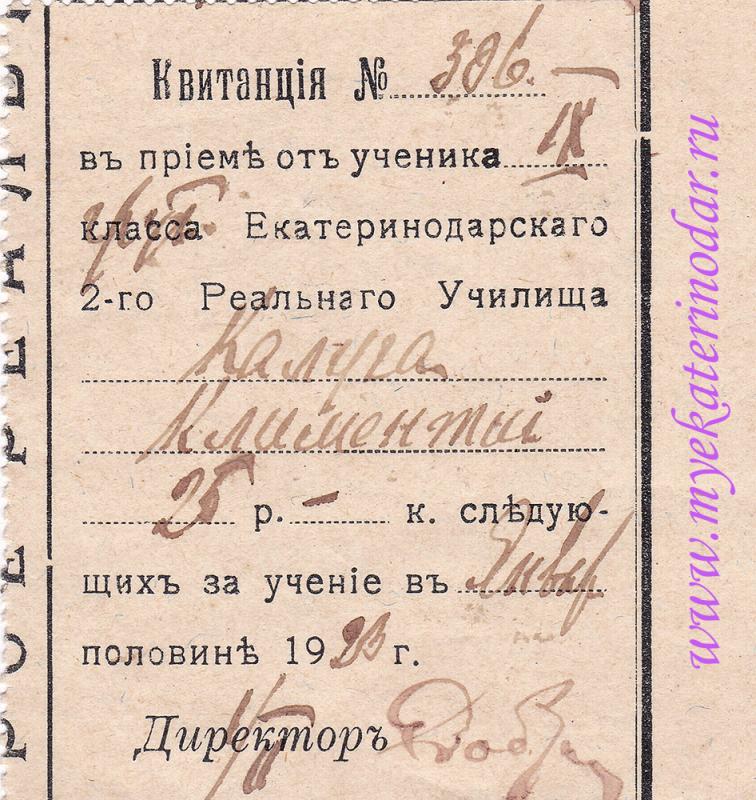 Квитанція № 396. —
въ пріемѣ отъ ученика IX
класса Екатеринодарскаго
2-го Реальнаго Училища
Калуга
Климентий
25 р. — к. слѣдую-
щихъ за ученіе въ Январ
половинѣ 1923 г.
Директоръ
www.myekaterinodar.ru